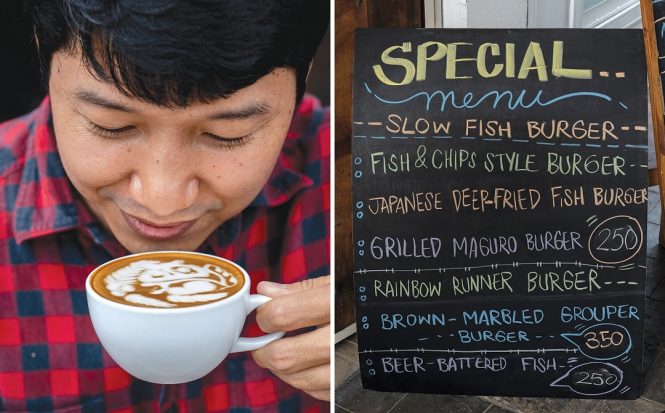 SPECIAL...
menu
- SLOW FISH BURGER --
FISH & CHIPS STYLE BURGER --
JAPANESE DEEP-FRIED FISH BURGER
GRILLED MAGURO BURGER 250
RAINBOW RUNNER BURGER ---
BROWN-MARBLED GROUPER
--- BURGER --- 350
BEER-BATTERED FISH - 250